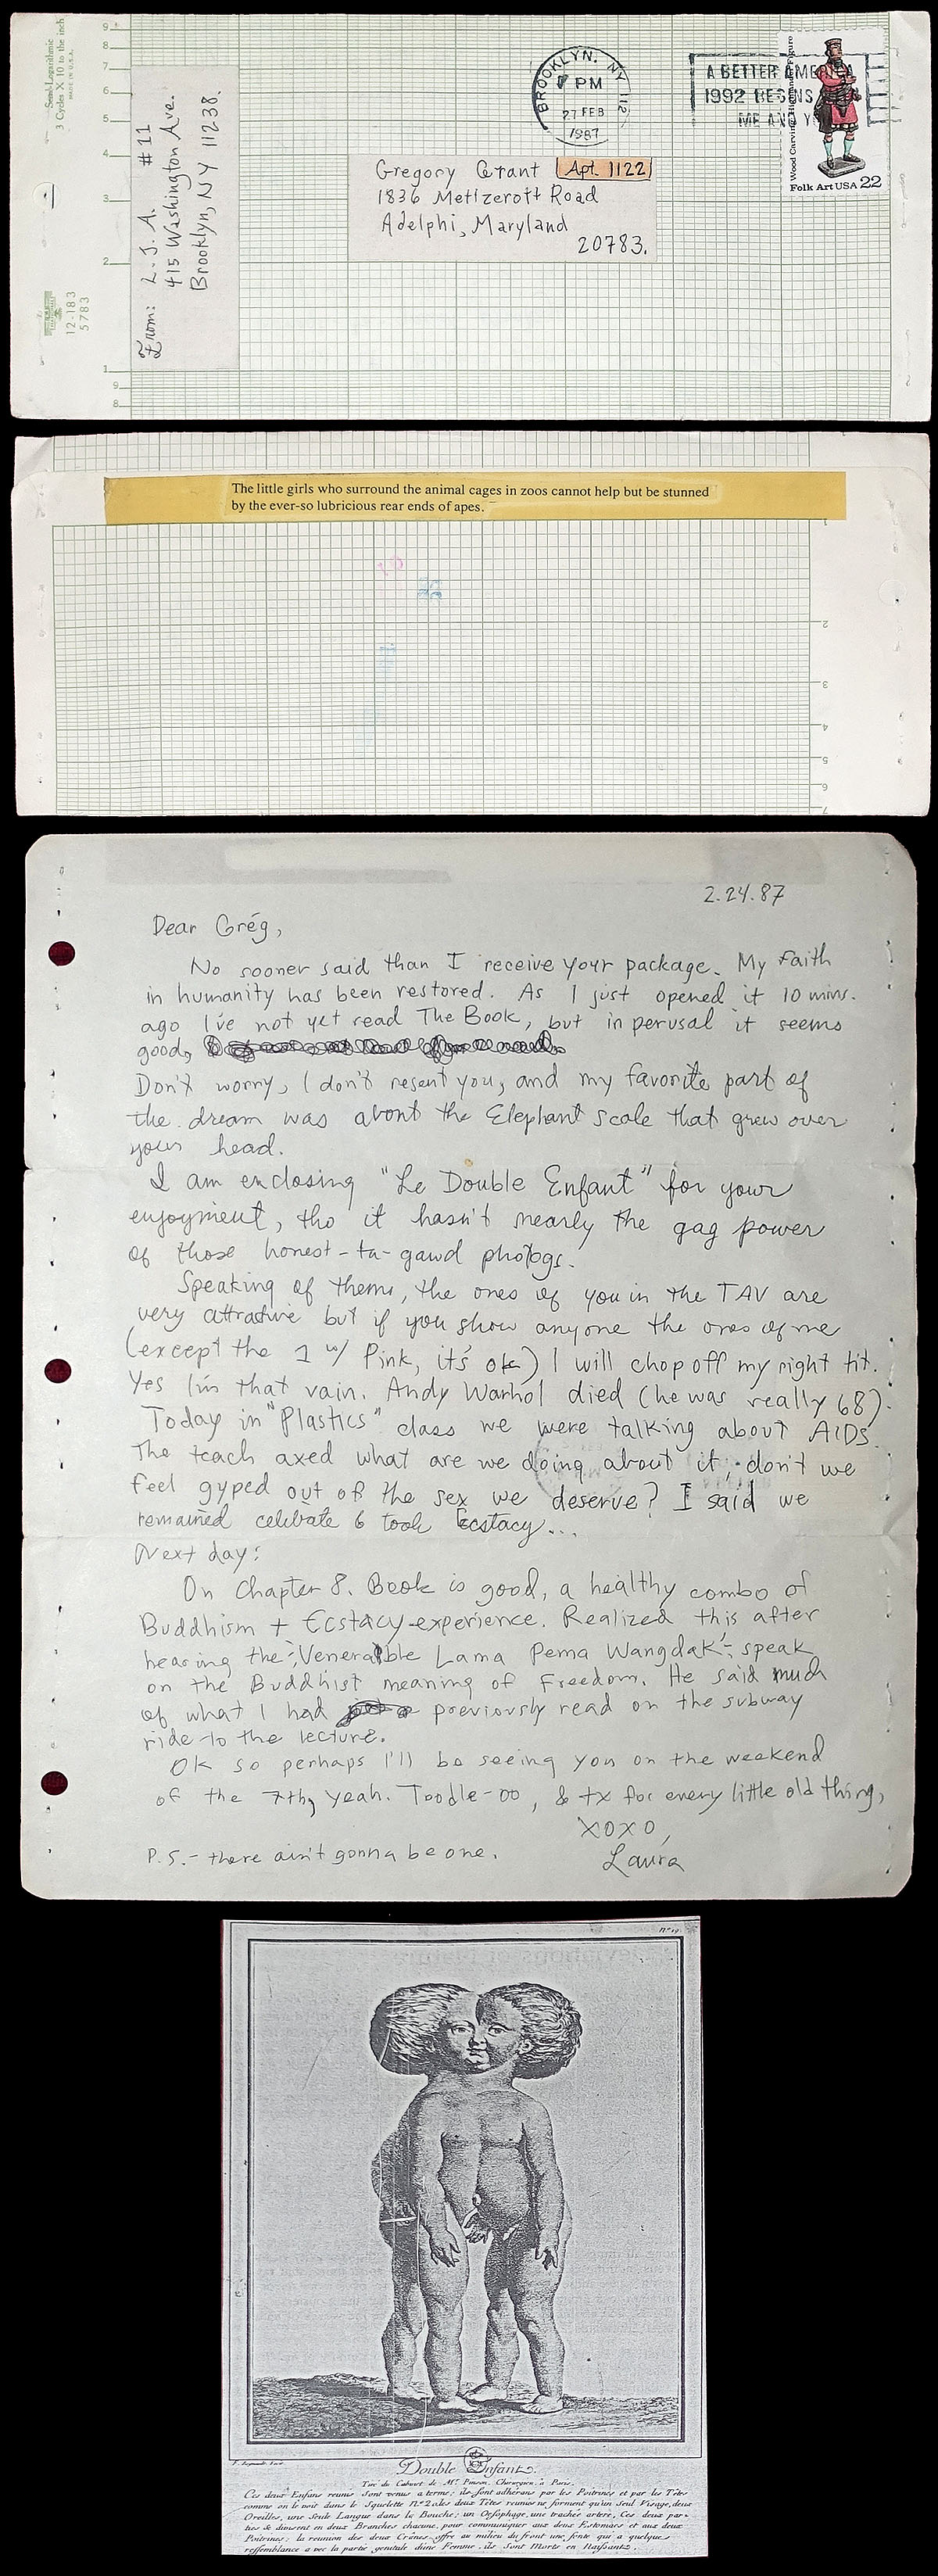 Semi-Logarithmic
3 Cycles X 10 to the inch
MADE IN U.S.A.
9
8
7
6
5
4
3
2
1
9
8
12-183
5783
From: L.J.A. #11
415 Washington Ave.
Brooklyn, NY 11238.
BROOKLYN, NY 112
PM
27 FEB
1987
A BETTER AMERICA
1992 BEGINS
ME AND Y
Wood Carving: Highland Figure
Folk Art USA 22
Gregory Grant Apt. 1122
1836 Metizerott Road
Adelphi, Maryland
20783.
The little girls who surround the animal cages in zoos cannot help but be stunned
by the ever-so lubricious rear ends of apes.
1
2
3
4
5
6
7
2.24.87
Dear Grég,
No sooner said than I receive your package. My Faith
in humanity has been restored. As I just opened it 10 mins.
ago I've not yet read The Book, but in perusal it seems
good,
Don't worry, I don't resent you, and my favorite part of
the dream was about the Elephant scale that grew over
your head.
I am enclosing "Le Double Enfant" for your
enjoyment, tho it hasn't nearly the gag power
of those honest-ta-gawd photogs.
Speaking of them, the ones of you in the TAV are
very attractive but if you show anyone the ones of me
(except the 1 w/ Pink, it's ok) I will chop off my right tit.
Yes I'm that vain. Andy Warhol died (he was really 68).
Today in "Plastics" class we were talking about AIDS.
The teach axed what are we doing about it, don't we
feel gyped out of the sex we deserve? I said we
remained celibate & took Ecstacy...
Next day:
On Chapter 8. Book is good, a healthy combo of
Buddhism + Ecstacy-experience. Realized this after
hearing the "Venerable Lama Pema Wangdak" speak
on the Buddhist meaning of Freedom. He said much
of what I had previously read on the subway
ride to the lecture.
OK so perhaps I'll be seeing you on the weekend
of the 7th, yeah. Toodle-oo, & tx for every little old thing,
XOXO,
Laura
P.S.- there ain't gonna be one.
Double Enfant.
Tiré du Cabinet de Mr. Pinson, Chirurgien, a Paris.
Ces deux Enfans reunis sont venus a terme; ils sont adhérans par les Poitrines et par les Têtes
comme on le voit dans le Squelette No. 2 des deux Têtes reunies ne forment qu'un Seul Visage, deux
Oreilles, une Seule Langue dans la Bouche; un Oesophage, une trachée artere; Ces deux par-
ties se divisent en deux Branches chacune, pour communiquer aux deux Estomacs et aux deux
Poitrines; la reunion des deux Cranes offre au milieu du front une fente qui a quelque
ressemblance avec la partie genitale d'une Femme, ils Sont Morts en Naissants.